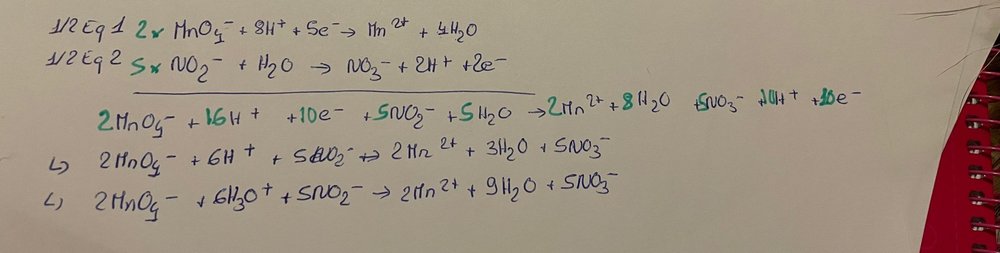 1/2 Eq 1 2x MnO₄⁻ + 8H⁺ + 5e⁻ → Mn²⁺ + 4H₂O
1/2 Eq 2 5x NO₂⁻ + H₂O → NO₃⁻ + 2H⁺ + 2e⁻
2MnO₄⁻ + 16H⁺ + 10e⁻ + 5NO₂⁻ + 5H₂O → 2Mn²⁺ + 8H₂O + 5NO₃⁻ + 10H⁺ + 10e⁻
↳ 2MnO₄⁻ + 6H⁺ + 5NO₂⁻ → 2Mn²⁺ + 3H₂O + 5NO₃⁻
↳ 2MnO₄⁻ + 6H₃O⁺ + 5NO₂⁻ → 2Mn²⁺ + 9H₂O + 5NO₃⁻